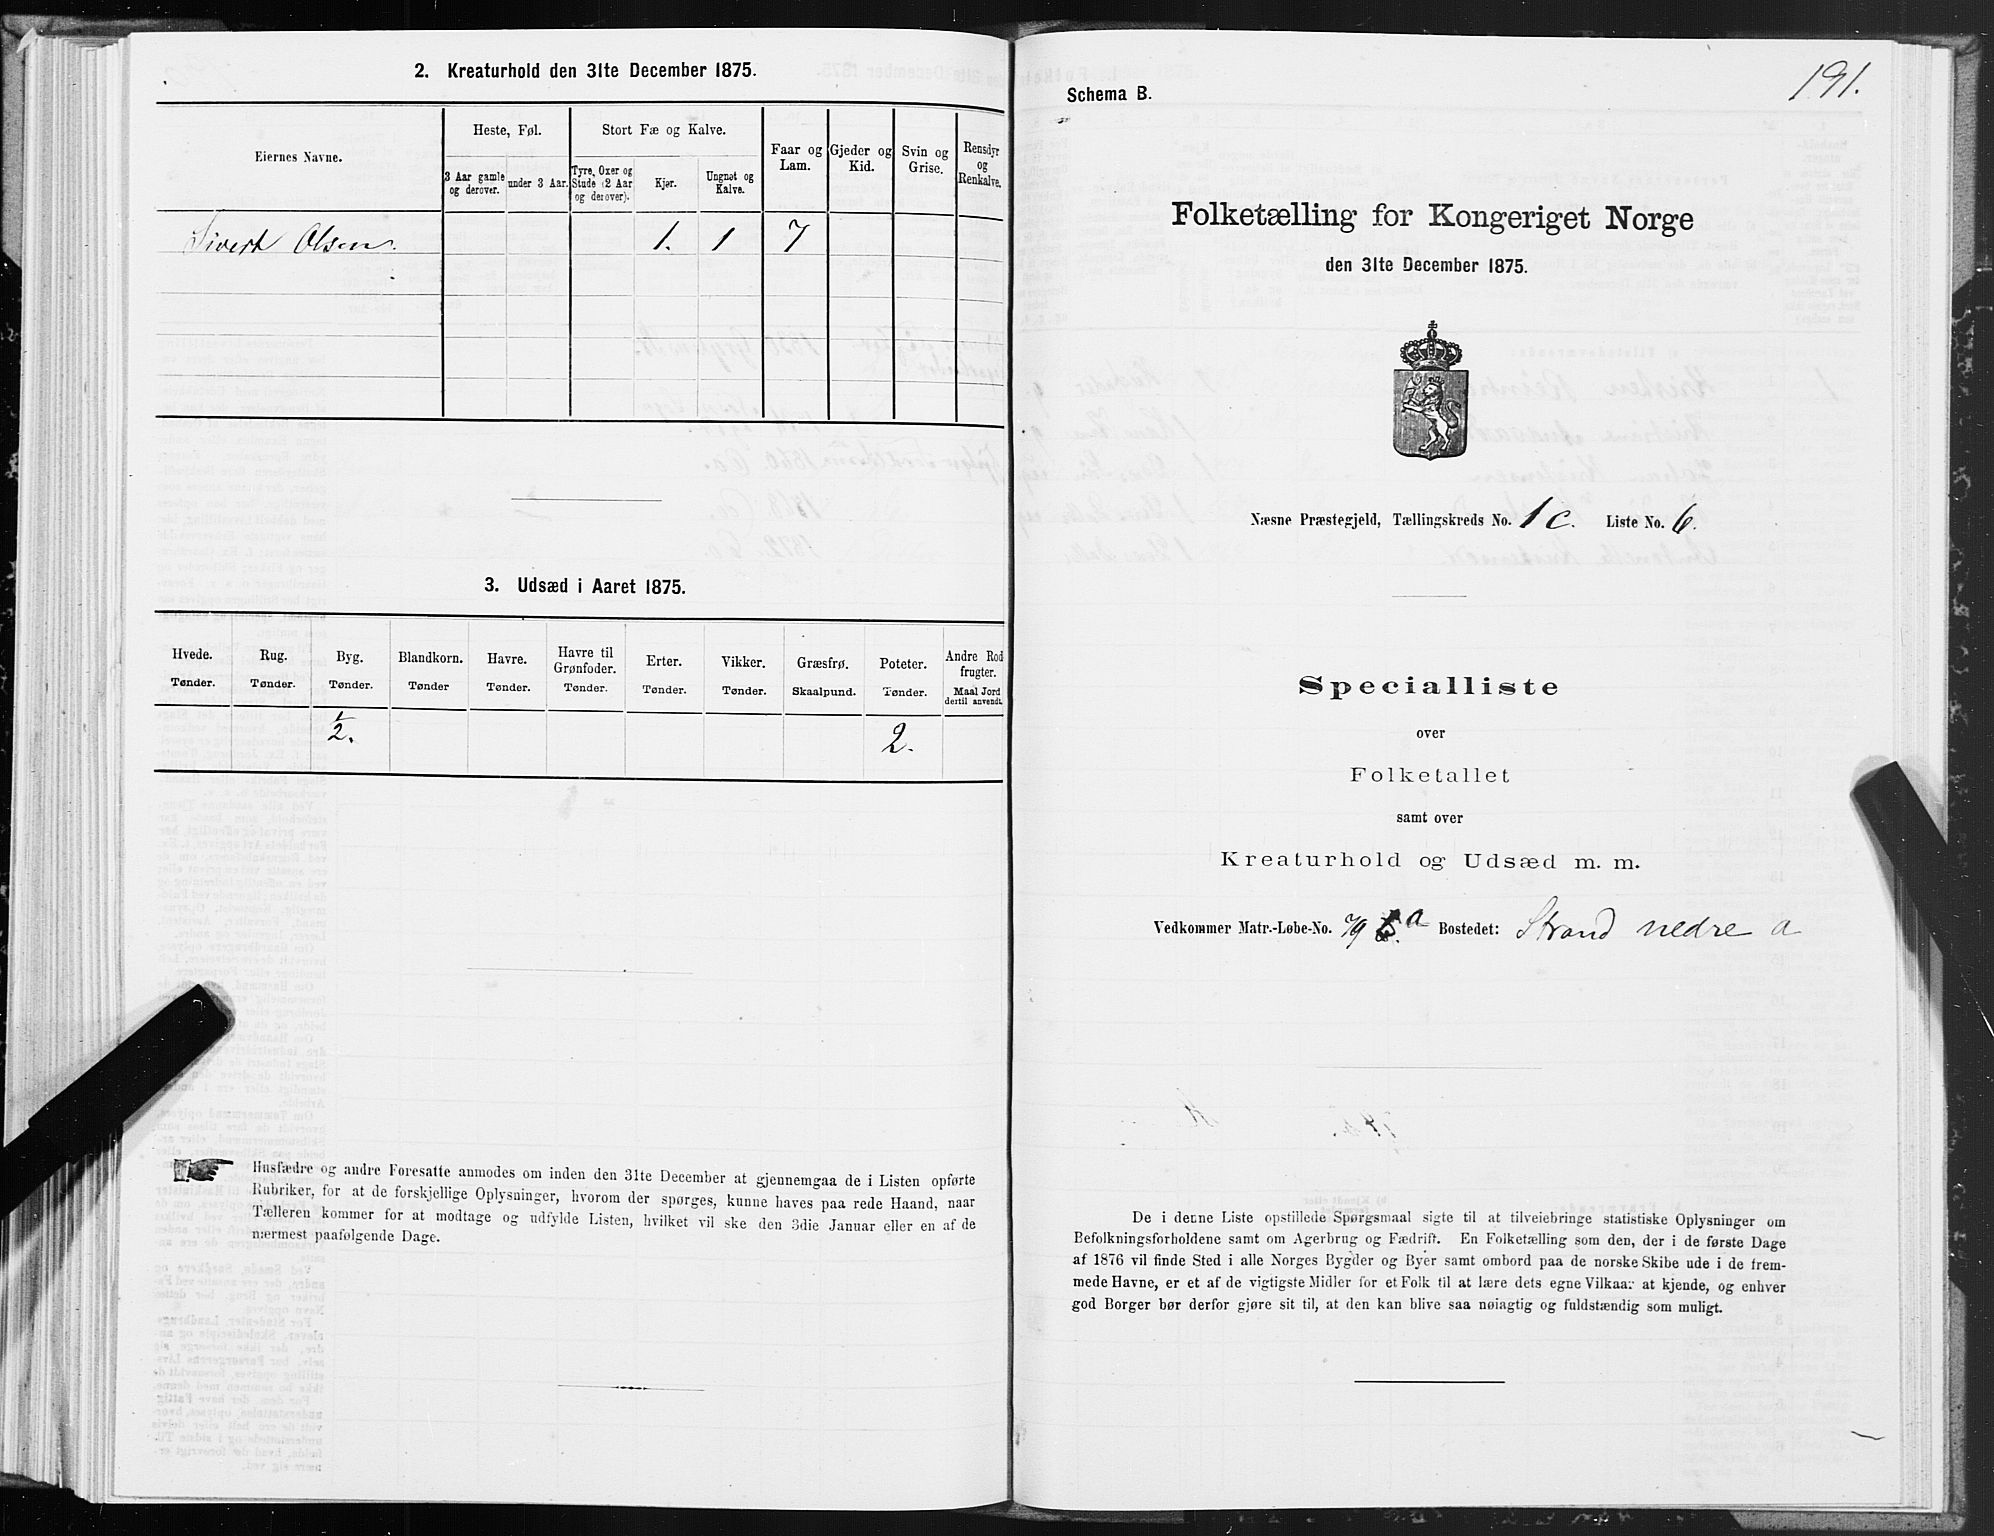 2. Kreaturhold den 31te December 1875.
Eiernes Navne.
Heste, Føl.
Stort Fæ og Kalve.
Faar og Lam.
Gjeder og Kid.
Svin og Grise.
Rensdyr og Renkalve.
3 Aar gamle og derover.
under 3 Aar.
Tyre, Oxer og Stude (2 Aar og derover).
Kjør.
Ungnøt og Kalve.
Sivert Olsen. 1. 1 7
3. Udsæd i Aaret 1875.
Hvede. Tønder.
Rug. Tønder.
Byg. Tønder.
Blandkorn. Tønder
Havre. Tønder.
Havre til Grønfoder. Tønder.
Erter. Tønder.
Vikker. Tønder.
Græsfrø. Skaalpund.
Poteter. Tønder.
Andre Rod frugter. Maal Jord dertil anvendt.
1/2. 2.
Husfædre og andre Foresatte anmodes om inden den 31te December at gjennemgaa de i Listen opførte
Rubriker, for at de forskjellige Oplysninger, hvorom der spørges, kunne haves paa rede Haand, naar
Tælleren kommer for at modtage og udfylde Listen, hvilket vil ske den 3die Januar eller en af de
nærmest paafølgende Dage.
191.
Schema B.
Folketælling for Kongeriget Norge
den 31te December 1875.
Næsne Præstegjeld, Tællingskreds No. 1 c. Liste No. 6.
Specialliste
over
Folketallet
samt over
Kreaturhold og Udsæd m. m.
Vedkommer Matr.-Løbe-No. 79 a Bostedet: Strand nedre a
De i denne Liste opstillede Spørgsmaal sigte til at tilveiebringe statistiske Oplysninger om
Befolkningsforholdene samt om Agerbrug og Fædrift. En Folketælling som den, der i de første Dage
af 1876 vil finde Sted i alle Norges Bygder og Byer samt ombord paa de norske Skibe ude i de frem-
mede Havne, er et af de vigtigste Midler for et Folk til at lære dets egne Vilkaar at kjende, og enhver
god Borger bør derfor gjøre sit til, at den kan blive saa nøiagtig og fuldstændig som muligt.